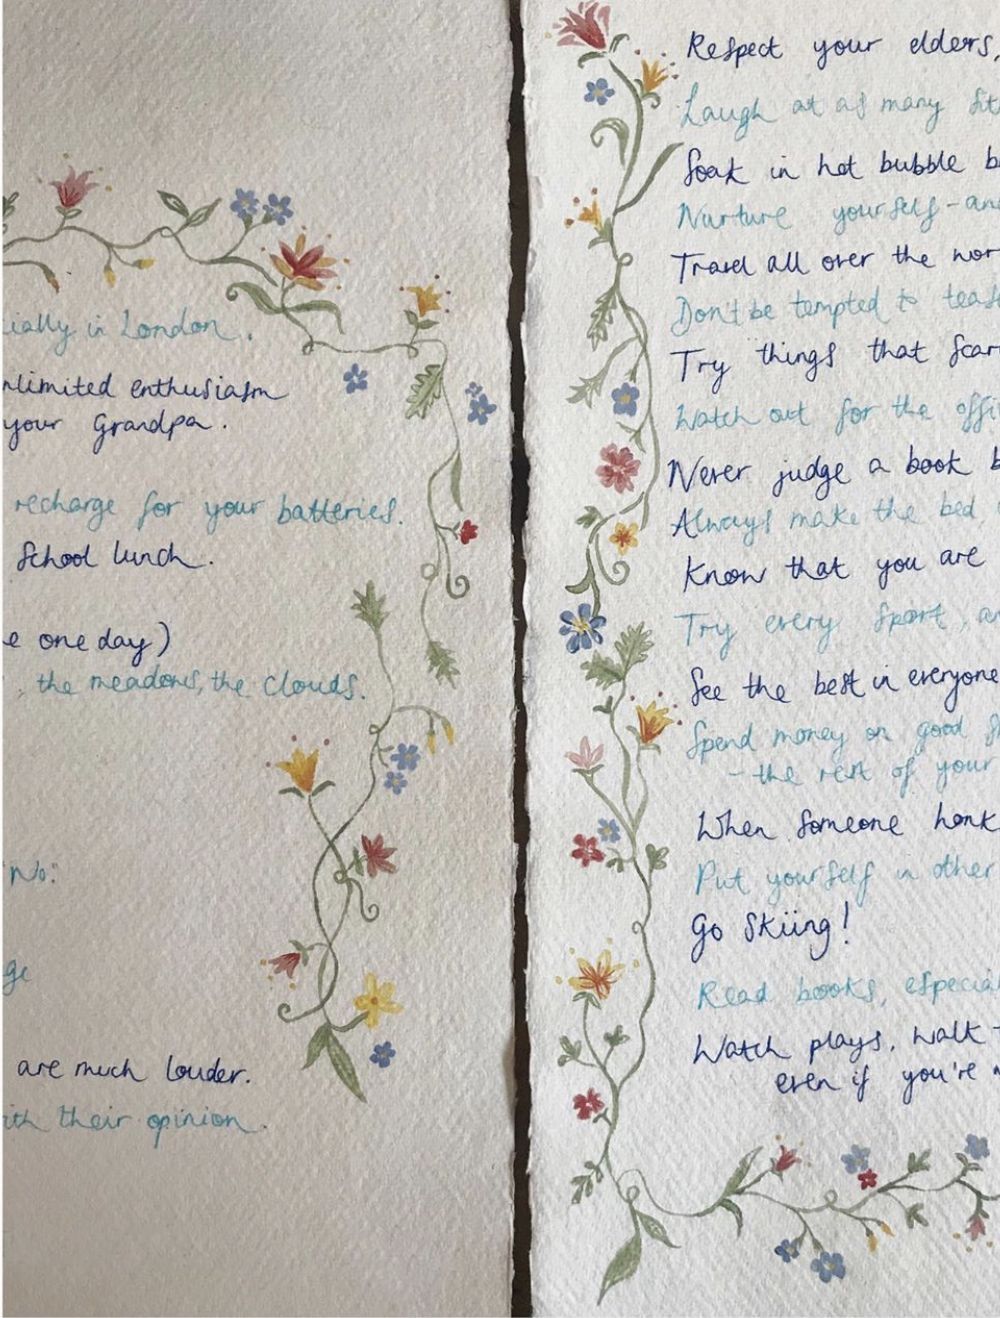 cially in London.
nlimited enthusiasm
your Grandpa.
recharge for your batteries.
School lunch.
e one day)
, the meadows, the clouds.
"No:"
ge
are much louder.
ith their opinion.
Respect your elders,
Laugh at as many sit
Soak in hot bubble b
Nurture yourself - and
Travel all over the wor
Don't be tempted to teas
Try things that scar
Watch out for the offi
Never judge a book b
Always make the bed
Know that you are
Try every sport, a
See the best in everyone
Spend money on good s
- the rest of your
When someone honk
Put yourself in other
Go Skiing!
Read books, especial
Watch plays, walk t
even if you're